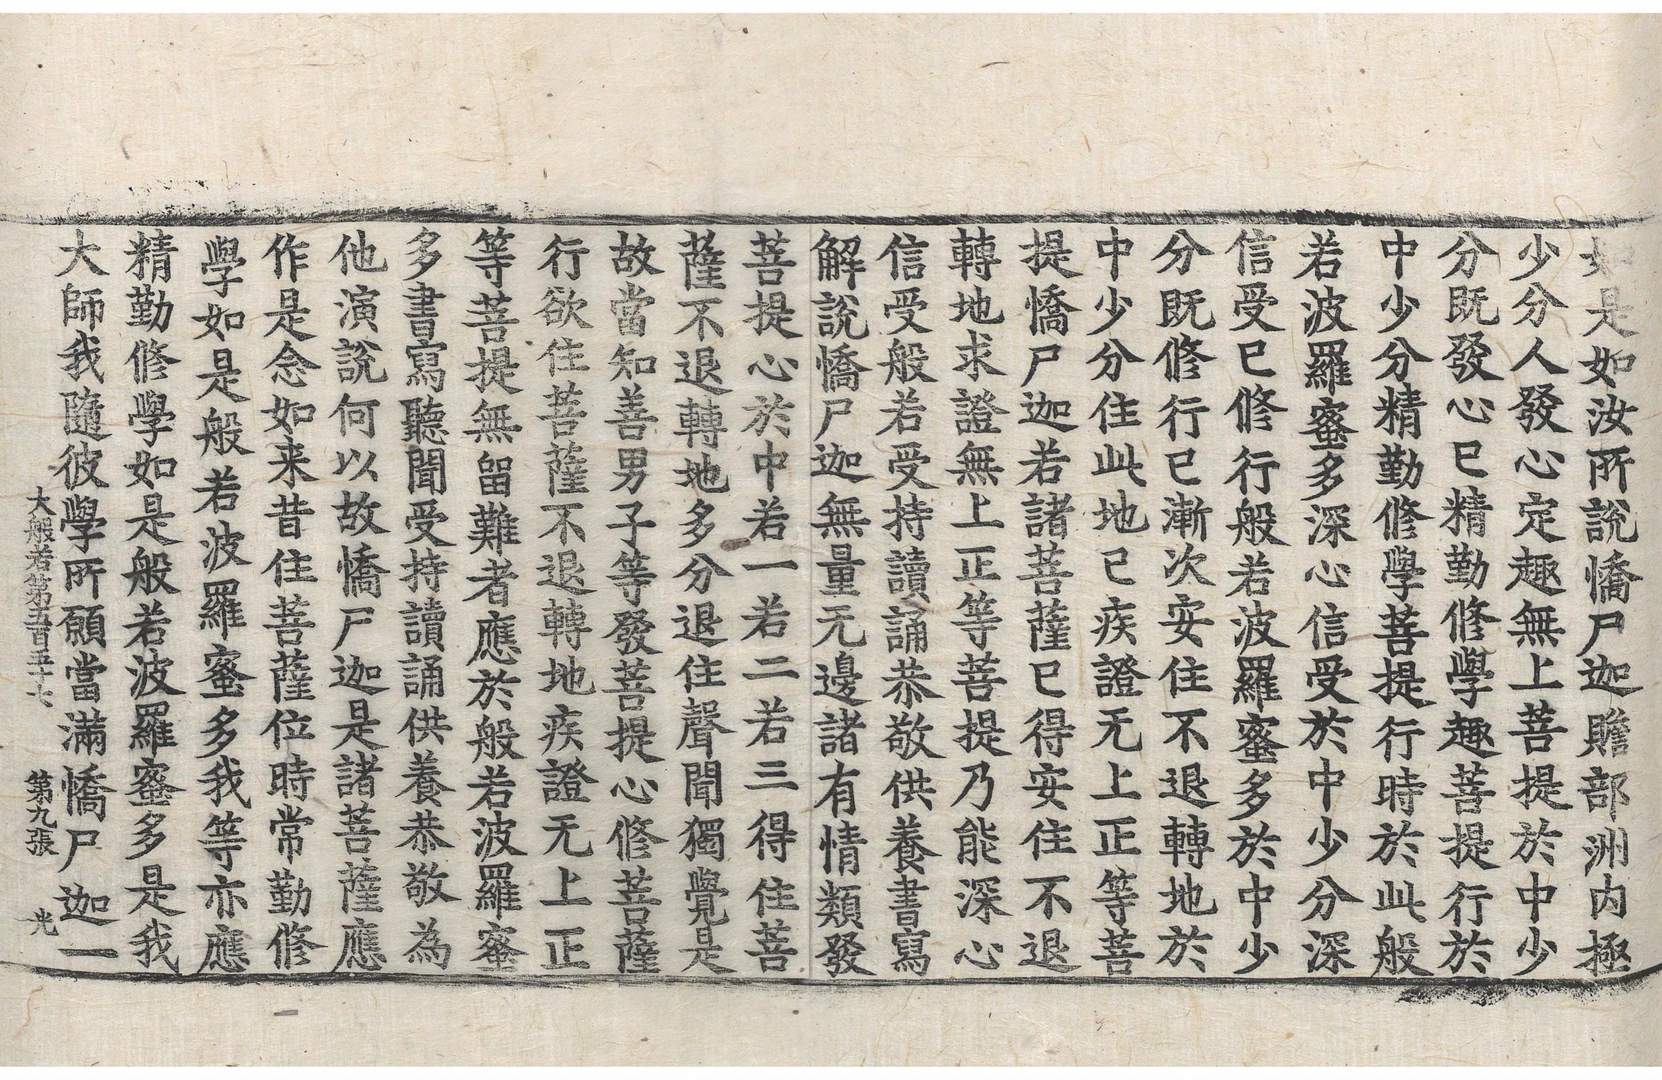 如是如汝所說憍尸迦贍部洲内極
少分人發心定趣無上菩提於中少
分既發心已精勤修學趣菩提行於
中少分精勤修學菩提行時於此般
若波羅蜜多深心信受於中少分深
信受已修行般若波羅蜜多於中少
分既修行已漸次安住不退轉地於
中少分住此地已疾證无上正等菩
提憍尸迦若諸菩薩已得安住不退
轉地求證無上正等菩提乃能深心
信受般若受持讀誦恭敬供養書寫
解說憍尸迦無量无邊諸有情類發
菩提心於中若一若二若三得住菩
薩不退轉地多分退住聲聞獨覺是
故當知善男子等發菩提心修菩薩
行欲住菩薩不退轉地疾證无上正
等菩提無留難者應於般若波羅蜜
多書寫聽聞受持讀誦供養恭敬為
他演說何以故憍尸迦是諸菩薩應
作是念如来昔住菩薩位時常勤修
學如是般若波羅蜜多我等亦應
精勤修學如是般若波羅蜜多是我
大師我隨彼學所願當滿憍尸迦一
大般若第五百五十六 第九張 光